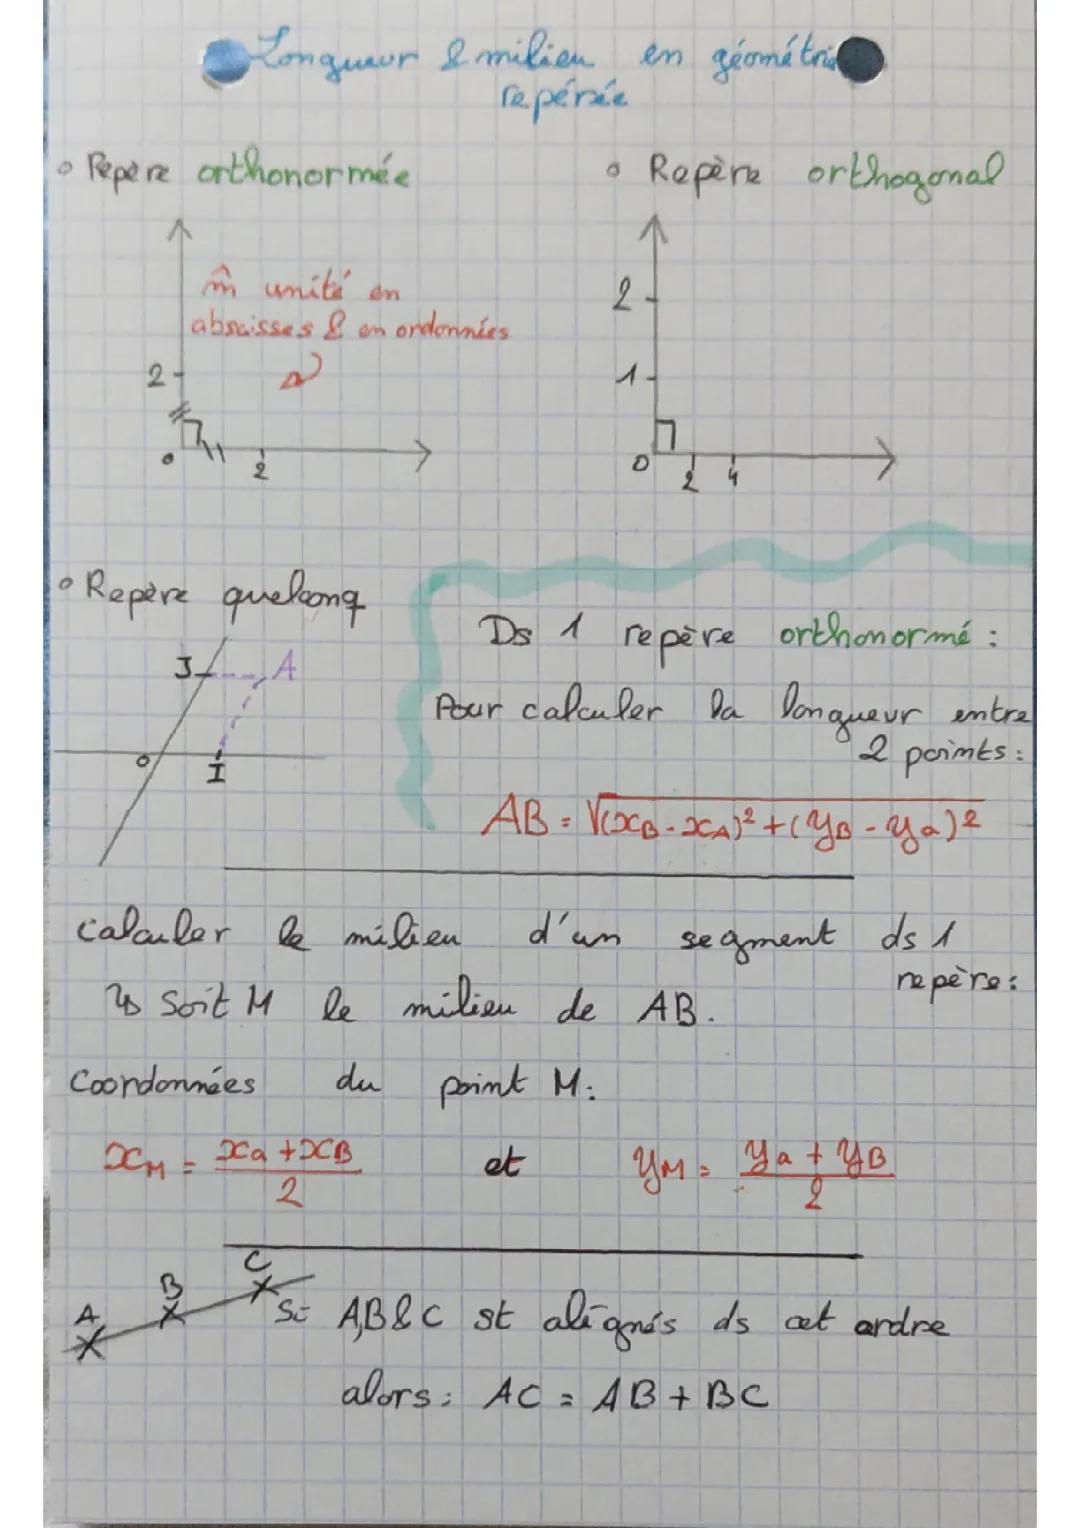 Longueur & milieu en géométrie
repérée
° Repère orthonormée
° Repère orthogonal
m̂ unité en
abscisses & en ordonnées
2
0
2
2
1
0
2
4
° Repère quelconq
J
A
O
I
Ds 1 repère orthonormé :
Pour calculer la longueur entre
2 points :
AB = √(xB - xA)² + (yB - ya)²
calculer le milieu d'un segment ds 1
repère :
↳ Soit M le milieu de AB.
Coordonnées du point M :
xM = xa + xB / 2 et yM = ya + yB / 2
A
B
C
Si A,B&C st alignés ds cet ordre
alors : AC = AB + BC